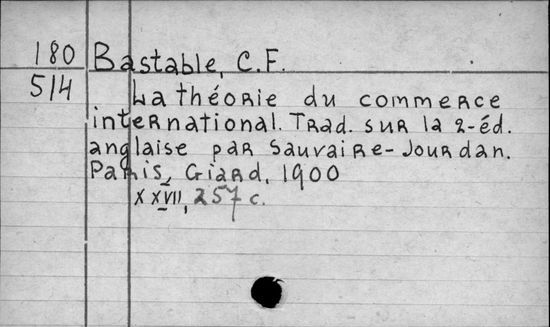 180 Bastable, C.F.
514
La théorie du commerce
international. Trad. sur la 2-éd.
anglaise par Sauvaire-Jourdan.
Paris, Giard, 1900
XXVII, 257 c.